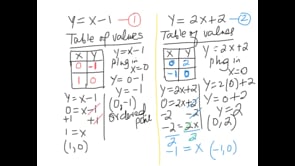 Y=X-1 ①
Table of values
X Y
0 -1
1 0
Y=X-1
plug in
X=0
Y=0-1
Y=-1
(0,-1)
ordered pair
Y=X-1
0=X-1
+1 +1
1=X
(1,0)
Y=2X+2 ②
Table of values
X Y
0 2
-1 0
Y=2X+2
plug in
X=0
Y=2(0)+2
Y=0+2
Y=2
(0,2)
Y=2X+2
0=2X+2
-2 -2
-2=2X
2 2
-1=X (-1,0)